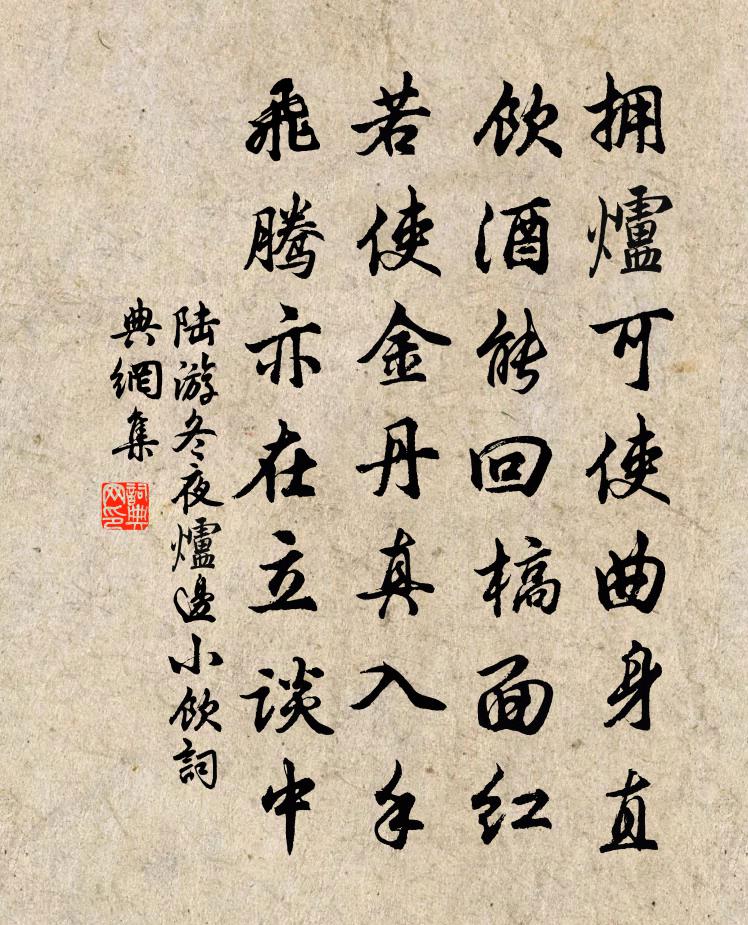 拥爐可使曲身直
饮酒能回槁面红
若使金丹真入手
飛腾亦在立谈中
陆游冬夜爐邊小饮詞
典網集
詞典
网印